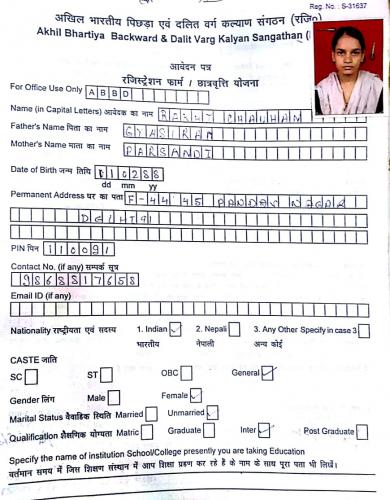 Reg. No. : S-31637
अखिल भारतीय पिछड़ा एवं दलित वर्ग कल्याण संगठन (रजि०)
Akhil Bhartiya Backward & Dalit Varg Kalyan Sangathan
आवेदन पत्र
रजिस्ट्रेशन फार्म / छात्रवृत्ति योजना
For Office Use Only A B B D
Name (in Capital Letters) आवेदक का नाम CHAUHAN
Father's Name पिता का नाम GYASIRAM
Mother's Name माता का नाम PARSANDI
Date of Birth जन्म तिथि 110288
dd mm yy
Permanent Address घर का पता F-44 45 PANDAV NAGAR
DELHI 91
PIN पिन 110091
Contact No. (if any) सम्पर्क सूत्र
9868817658
Email ID (if any)
Nationality राष्ट्रीयता एवं सदस्य 1. Indian 2. Nepali 3. Any Other Specify in case 3
भारतीय नेपाली अन्य कोई
CASTE जाति
SC ST OBC General
Gender लिंग Male Female
Marital Status वैवाहिक स्थिति Married Unmarried
Qualification शैक्षणिक योग्यता Matric Graduate Inter Post Graduate
Specify the name of institution School/College presently you are taking Education
वर्तमान समय में जिस शिक्षण संस्थान में आप शिक्षा ग्रहण कर रहे हैं के नाम के साथ पूरा पता भी लिखें।